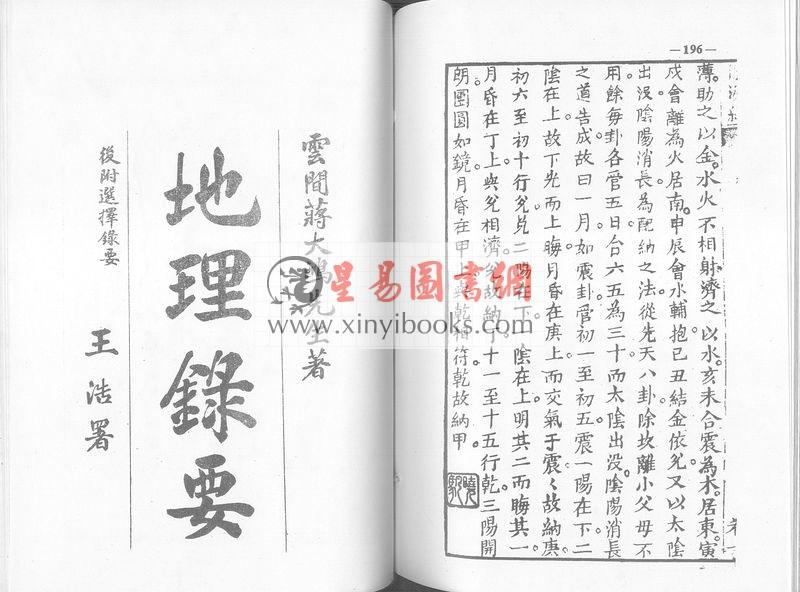 —196—
薄助之以金水火不相射濟之以水亥未合震為木居東寅
戌會離為火居南申辰會水輔抱巳丑結金依兌又以太陰
出沒陰陽消長為配納之法從先天八卦除坎離小父母不
用餘每卦各管五日合六五為三十而太陰出沒陰陽消長
之道告成故曰一月如震卦管初一至初五震一陽在下二
陰在上故下光而上晦月昏在庚上而交氣于震々故納庚
初六至初十行兌兌二陽在下陰在上明其二而晦其一
月昏在丁上與兌相濟兌故納丁十一至十五行乾三陽開
朗團圓如鏡月昏在甲上與乾相符乾故納甲
雲間蔣大鴻先生著
地理錄要
後附選擇錄要
王浩署
星易圖書網
www.xinyibooks.com